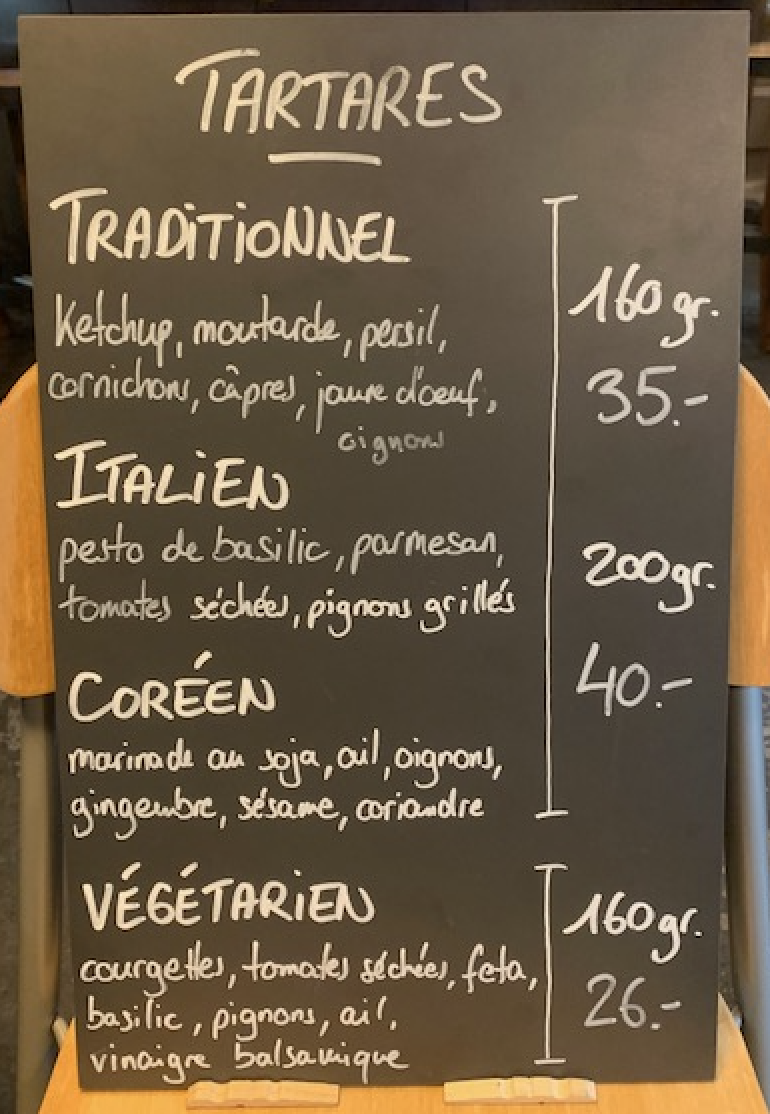 TARTARES
TRADITIONNEL
Ketchup, moutarde, persil,
cornichons, câpres, jaune d'œuf,
oignons
160 gr.
35.-
ITALIEN
pesto de basilic, parmesan,
tomates séchées, pignons grillés
200 gr.
40.-
CORÉEN
marinade au soja, ail, oignons,
gingembre, sésame, coriandre
VÉGÉTARIEN
courgettes, tomates séchées, feta,
basilic, pignons, ail,
vinaigre balsamique
160 gr.
26.-